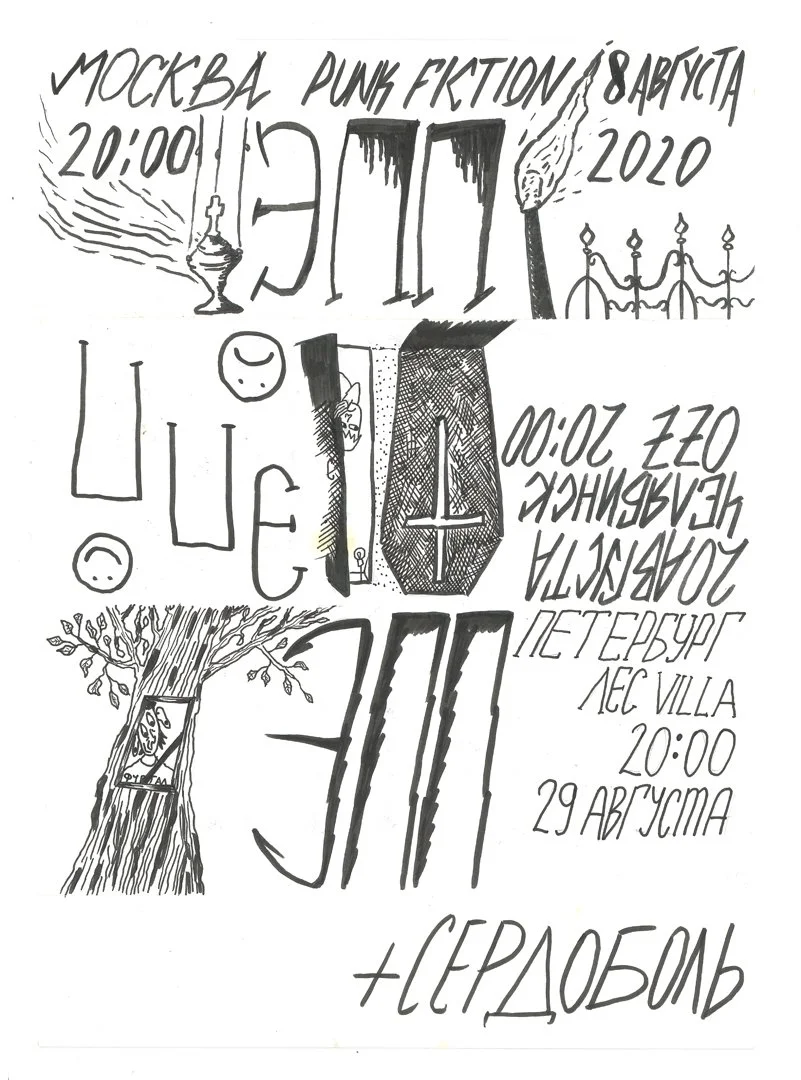 МОСКВА PUNK FICTION 8 АВГУСТА
20:00 ЭПП 2020
ЭПП
20 АВГУСТА
ЧЕЛЯБИНСК
OZZ 20:00
ЭПП
ПЕТЕРБУРГ
ЛЕС VILLA
20:00
29 АВГУСТА
+СЕРДОБОЛЬ